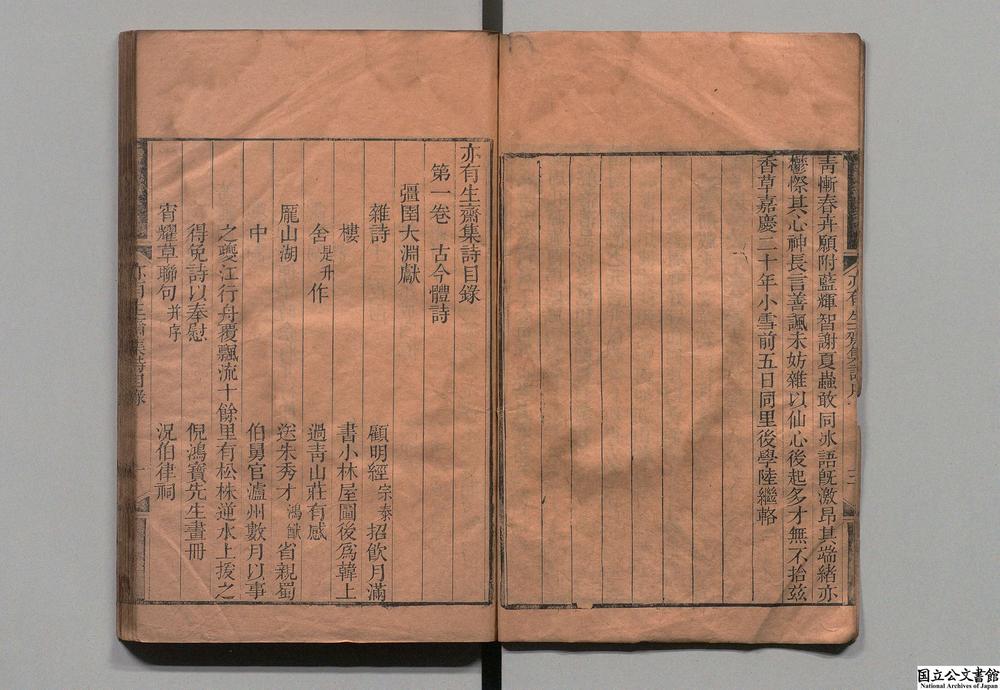 青慚春卉願附藍輝智謝夏蟲敢同冰語旣激昂其端緒亦
鬱際其心神長言善諷未妨雜以仙心後起多才無不拾茲
香草嘉慶二十年小雪前五日同里後學陸繼輅
亦有生齋集詩目錄
第一卷 古今體詩
彊圉大淵獻
雜詩 顧明經宗泰招飲月滿
樓 書小林屋圖後爲韓上
舍是升作 過靑山莊有感
龎山湖 送朱秀才鴻猷省親蜀
中 伯舅官瀘州數月以事
之夔江行舟覆飄流十餘里有松株逆水上援之
得免詩以奉慰 倪鴻寶先生畫冊
宵耀草聯句并序 況伯律祠
亦有生齋集詩目錄 一
国立公文書館
National Archives of Japan